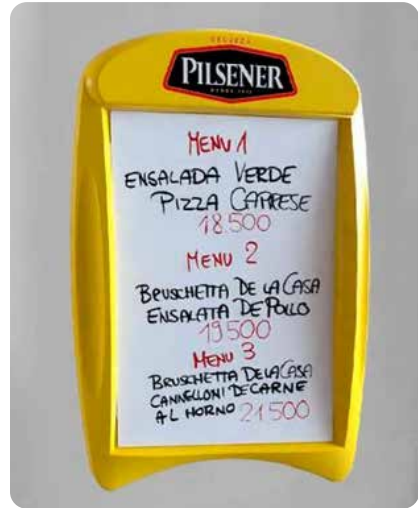 CERVEZA
PILSENER
DESDE 1912
MENU 1
ENSALADA VERDE
PIZZA CAPRESE
18.500
MENU 2
BRUSCHETTA DE LA CASA
ENSALATA DE POLLO
19500
MENU 3
BRUSCHETTA DE LA CASA
CANNELLONI DE CARNE
AL HORNO 21.500